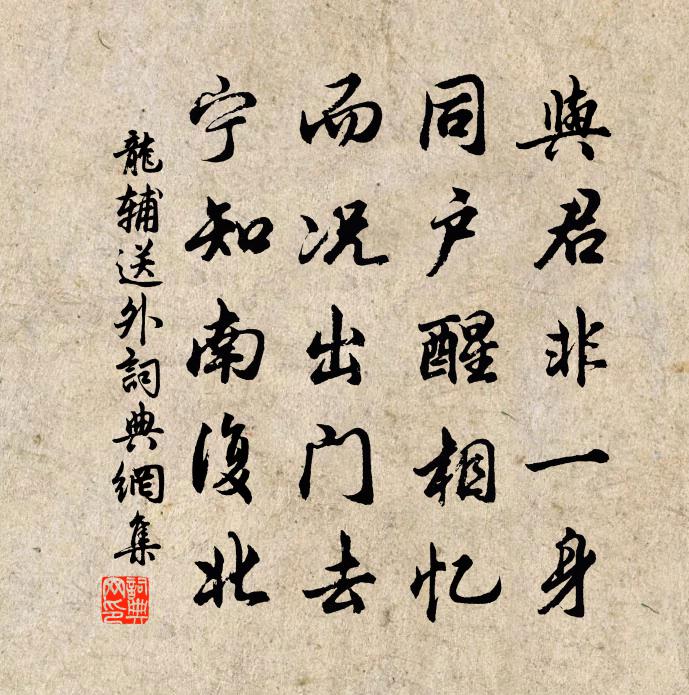 與君非一身
同户醒相忆
而况出门去
宁知南復北
龍辅送外詞典網集
詞典
网印